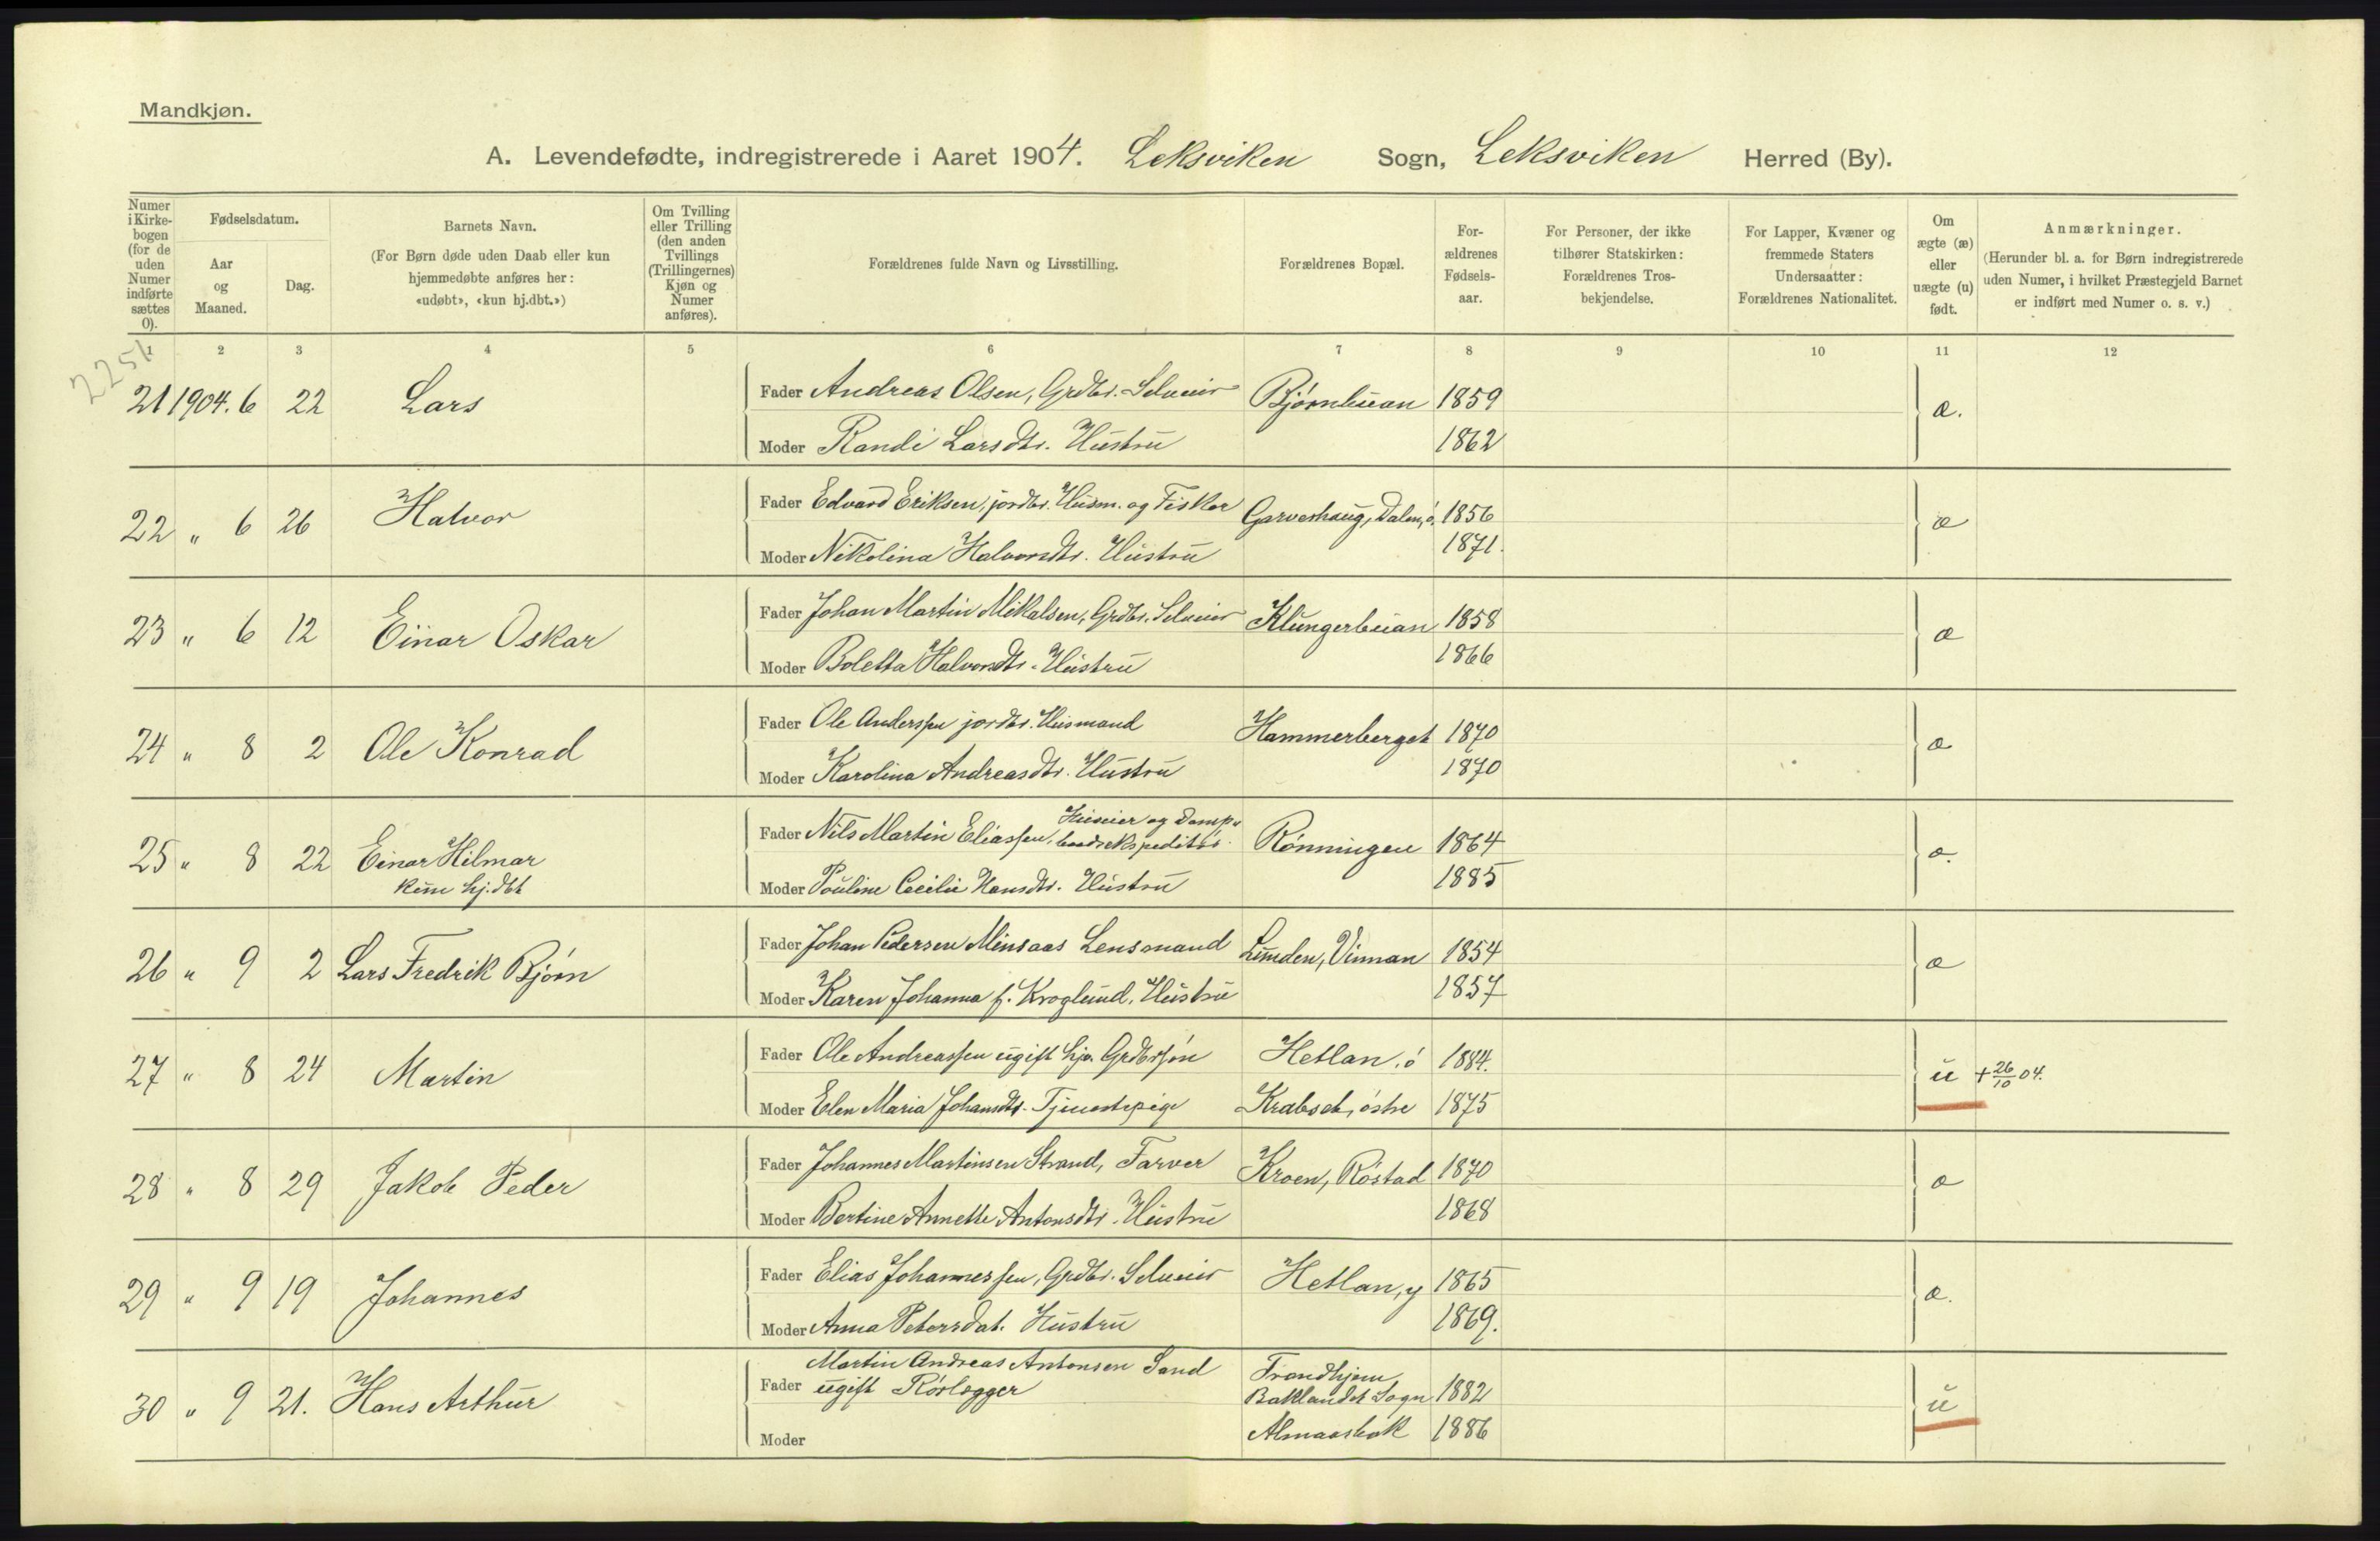 Mandkjøn.
A. Levendefødte, indregistrerede i Aaret 1904. Leksviken Sogn, Leksviken Herred (By).
Numer i Kirkebogen (for de uden Numer indførte sættes 0).
Fødselsdatum.
Aar og Maaned.
Dag.
Barnets Navn.
(For Børn døde uden Daab eller kun hjemmedøbte anføres her: «udøbt», «kun hj.dbt.»)
Om Tvilling eller Trilling (den anden Tvillings (Trillingernes) Kjøn og Numer anføres).
Forældrenes fulde Navn og Livsstilling.
Forældrenes Bopæl.
Forældrenes Fødselsaar.
For Personer, der ikke tilhører Statskirken: Forældrenes Trosbekjendelse.
For Lapper, Kvæner og fremmede Staters Undersaatter: Forældrenes Nationalitet.
Om ægte (æ) eller uægte (u) født.
Anmærkninger.
(Herunder bl. a. for Børn indregistrerede uden Numer, i hvilket Præstegjeld Barnet er indført med Numer o. s. v.)
1 2 3 4 5 6 7 8 9 10 11 12
2251
21 1904. 6 22 Lars Fader Andreas Olsen, Grdbr. Selveier Bjørnbuan 1859 æ.
Moder Randi Larsdtr. Hustru 1862
22 " 6 26 Halvor Fader Edvard Eriksen, jordbr. Husm. og Fisker Garveshaug, Dalen, ø. 1856 æ
Moder Nikolina Halvorsdtr. Hustru 1871.
23 " 6 12 Einar Oskar Fader Johan Martin Mikalsen, Grdbr. Selveier Klungerbuan 1858 æ
Moder Boletta Halvorsdtr. Hustru 1866
24 " 8 2 Ole Konrad Fader Ole Anderssen jordbr. Husmand Hammerberget 1870 æ
Moder Karolina Andreasdtr. Hustru 1870
25 " 8 22 Einar Hilmar Fader Nils Martin Eliassen, Huseier og Damp- Rønningen 1864 æ.
baadsekspeditør.
kun hj.dbt Moder Pouline Cecilie Hansdtr. Hustru 1885
26 " 9 2 Lars Fredrik Bjørn Fader Johan Pedersen Minsaas Lensmand Lunden, Vinnan 1854 æ
Moder Karen Johanna f. Kroglund, Hustru 1857
27 " 8 24 Martin Fader Ole Andreassen ugift hjv. Grdbrsøn Hetlan, ø 1884. u + 26/10 04.
Moder Elen Maria Johansdtr. Tjenestepige Krabset, østre 1875
28 " 8 29 Jakob Peder Fader Johannes Martinsen Strand, Farver Kroen, Røstad 1870 æ
Moder Bertine Annette Antonsdtr. Hustru 1868
29 " 9 19 Johannes Fader Elias Johannessen, Grdbr. Selveier Hetlan, y 1865 æ.
Moder Anna Petersdat. Hustru 1869.
30 " 9 21. Hans Arthur Martin Andreas Antonsen Sand Trondhjem
Fader ugift Rørlægger Baklandet Sogn 1882 u
Moder Almaasbak 1886